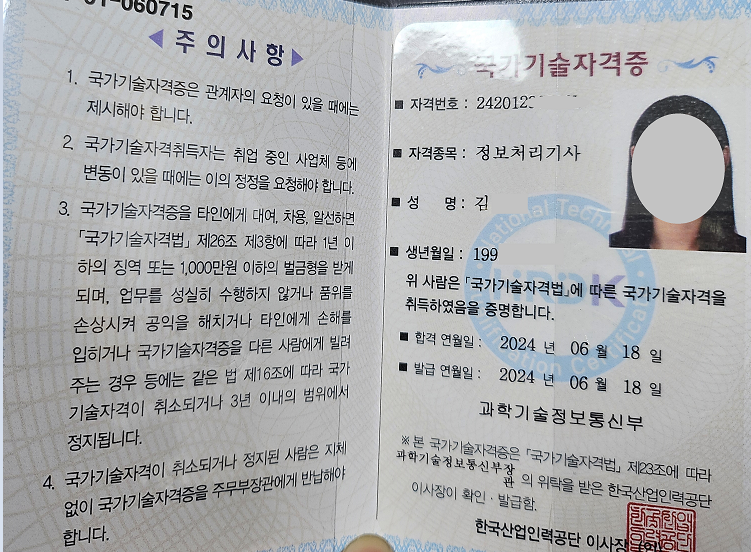 01-060715
주의사항
1. 국가기술자격증은 관계자의 요청이 있을 때에는
제시해야 합니다.
2. 국가기술자격취득자는 취업 중인 사업체 등에
변동이 있을 때에는 이의 정정을 요청해야 합니다.
3. 국가기술자격증을 타인에게 대여, 차용, 알선하면
「국가기술자격법」 제26조 제3항에 따라 1년 이
하의 징역 또는 1,000만원 이하의 벌금형을 받게
되며, 업무를 성실히 수행하지 않거나 품위를
손상시켜 공익을 해치거나 타인에게 손해를
입히거나 국가기술자격증을 다른 사람에게 빌려
주는 경우 등에는 같은 법 제16조에 따라 국가
기술자격이 취소되거나 3년 이내의 범위에서
정지됩니다.
4. 국가기술자격이 취소되거나 정지된 사람은 지체
없이 국가기술자격증을 주무부장관에게 반납해야
합니다.
국가기술자격증
■ 자격번호 : 2420123
■ 자격종목 : 정보처리기사
■ 성 명 : 김
■ 생년월일 : 199
위 사람은 「국가기술자격법」에 따른 국가기술자격을
취득하였음을 증명합니다.
■ 합격 연월일 : 2024 년 06 월 18 일
■ 발급 연월일 : 2024 년 06 월 18 일
과학기술정보통신부
※ 본 국가기술자격증은 「국가기술자격법」 제23조에 따라
과학기술정보통신부장관 의 위탁을 받은 한국산업인력공단
이사장이 확인·발급함.
한국산업인력공단 이사장
HRDK